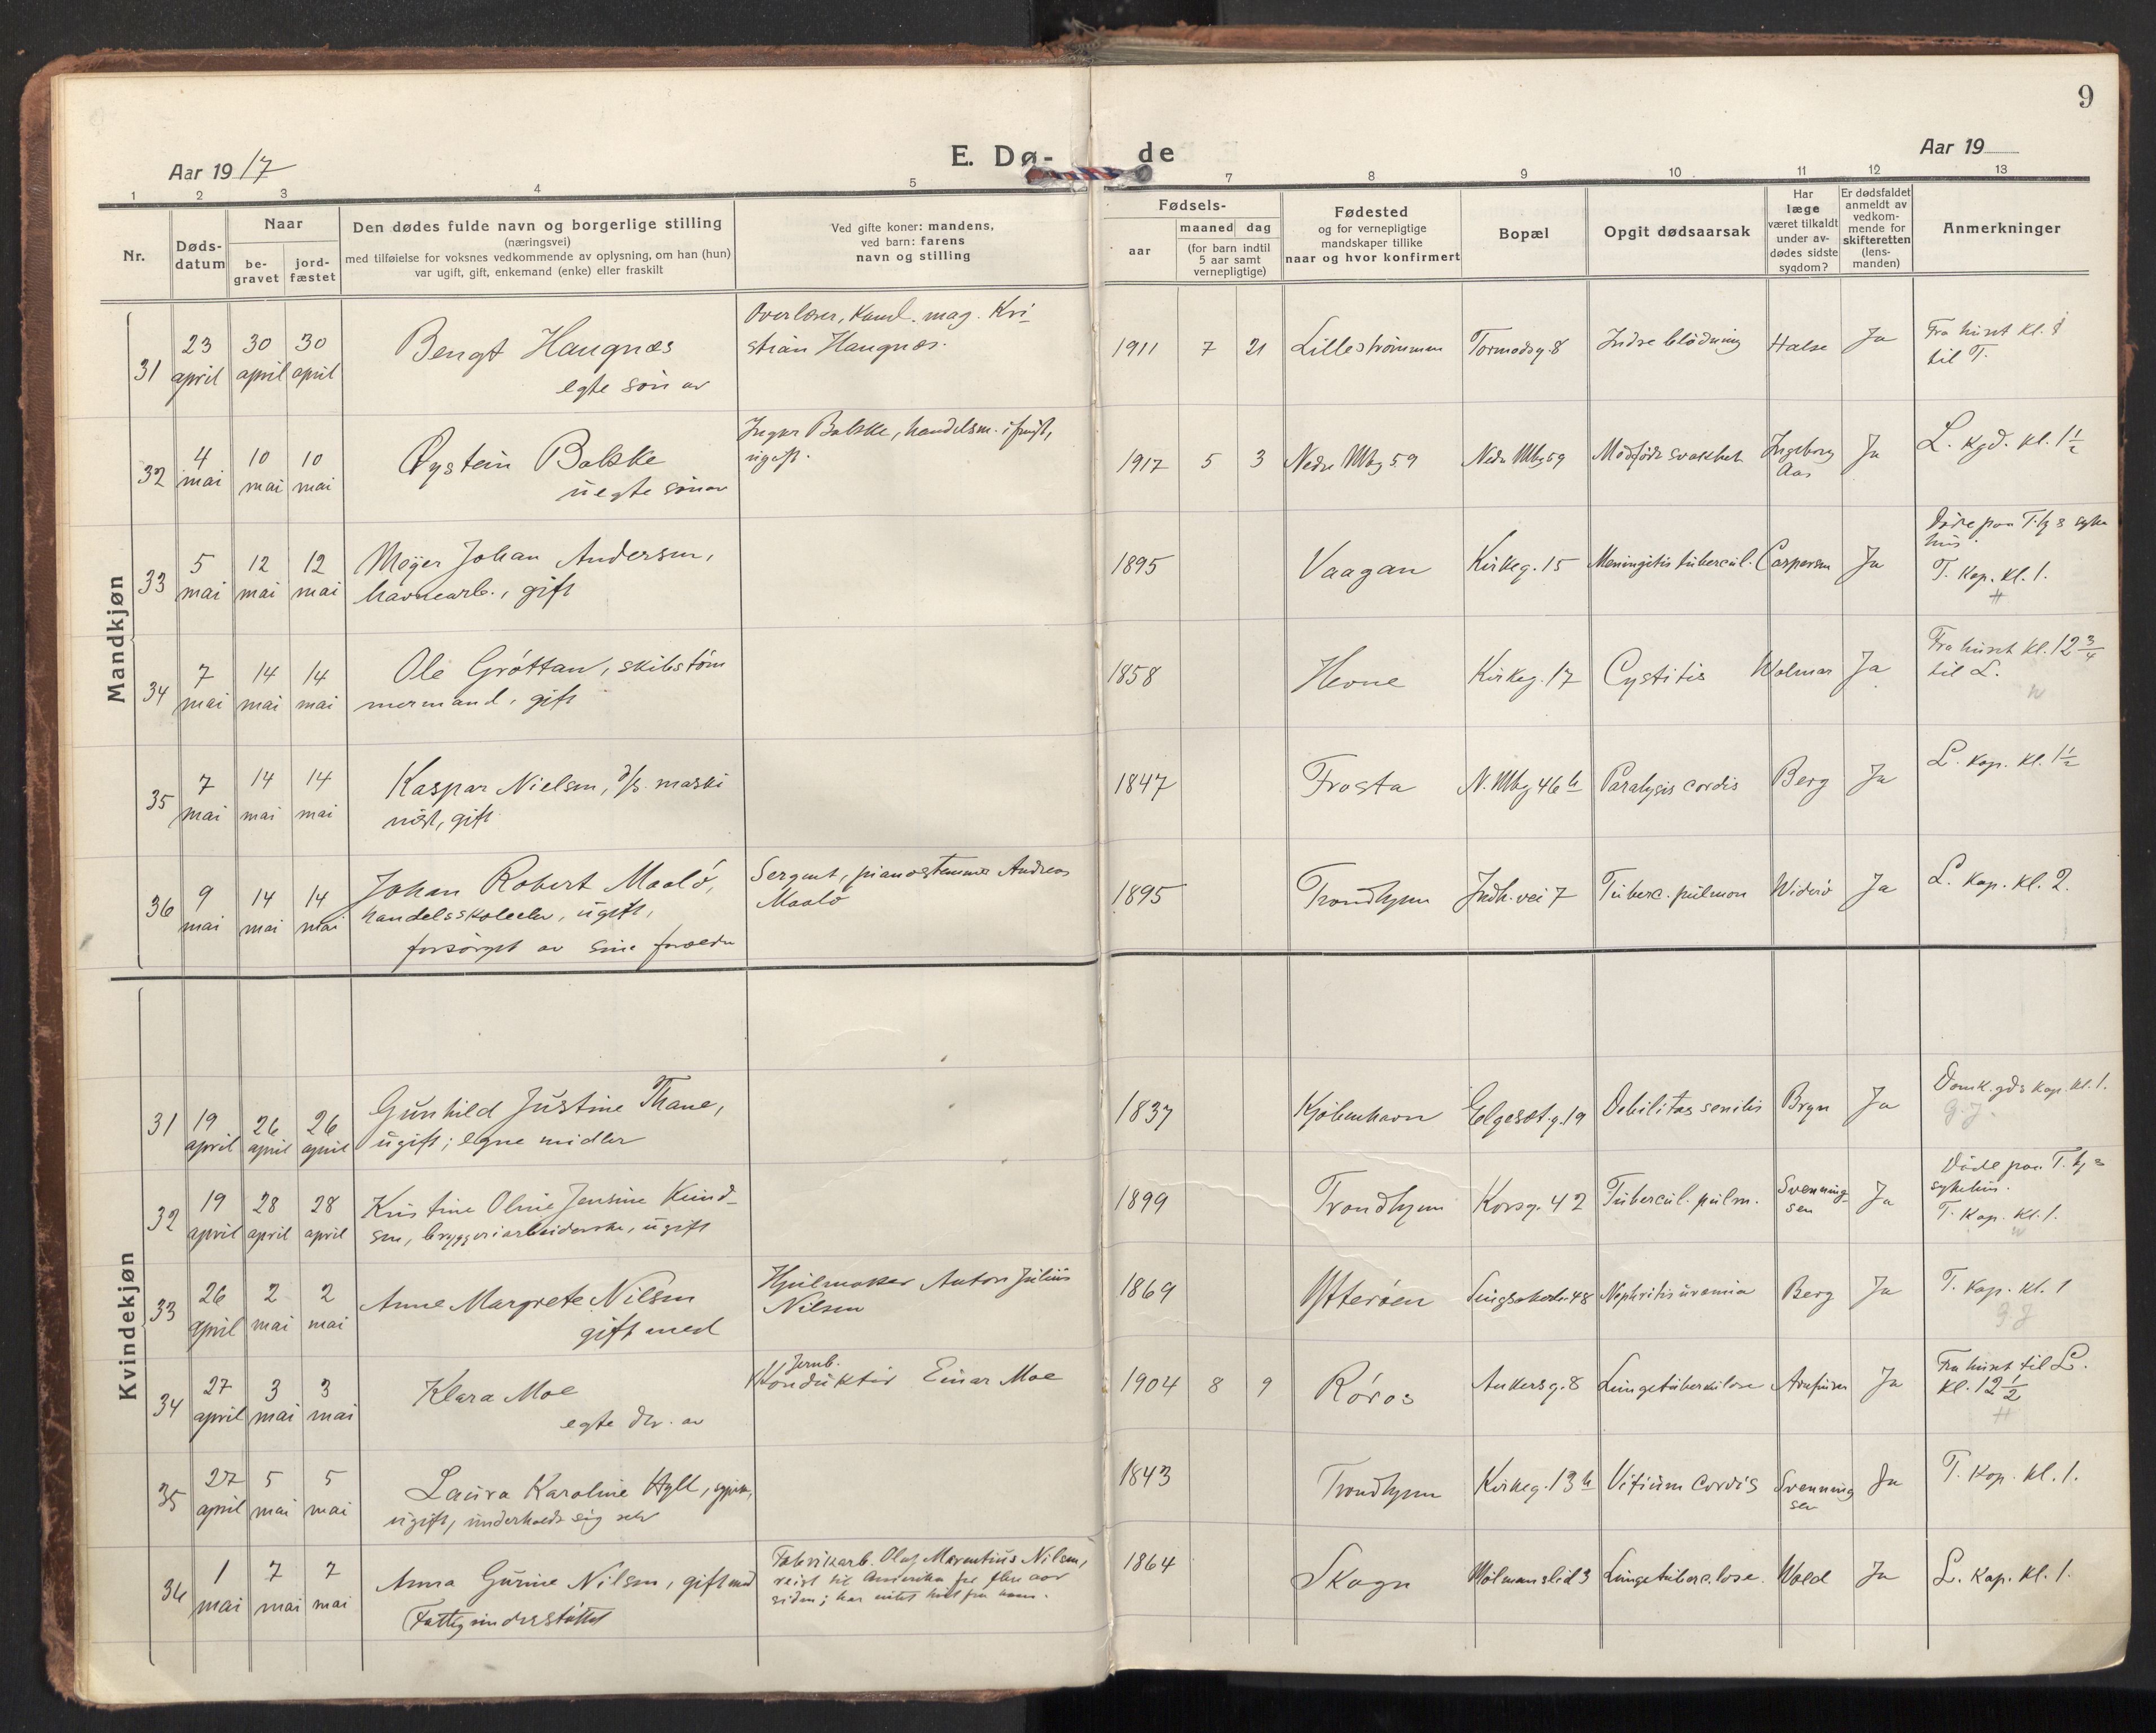 9
Aar 1917
E. Dø-
de
Aar 19
1 2 3 4 5 7 8 9 10 11 12 13
Nr.
Døds-
datum
Naar
be-
gravet
jord-
fæstet
Den dødes fulde navn og borgerlige stilling
(næringsvei)
med tilføielse for voksnes vedkommende av oplysning, om han (hun)
var ugift, gift, enkemand (enke) eller fraskilt
Ved gifte koner: mandens,
ved barn: farens
navn og stilling
Fødsels-
aar
maaned dag
(for barn indtil
5 aar samt
vernepligtige)
Fødested
og for vernepligtige
mandskaper tillike
naar og hvor konfirmert
Bopæl
Opgit dødsaarsak
Har
læge
været tilkaldt
under av-
dødes sidste
sygdom?
Er dødsfaldet
anmeldt av
vedkom-
mende for
skifteretten
(lens-
manden)
Anmerkninger
Mandkjøn
31 23 april 30 april 30 april
Bengt Haugnæs
egte søn av
Overlærer, Kand. mag. Kri-
stian Haugnæs.
1911 7 21 Lillestrømmen Tormodsg. 8 Indre blødning Halse Ja
Fra huset kl.
til T.
32 4 mai 10 mai 10 mai
Øystein Balske
uegte søn av
Inger Balske, handelsm. i frugt,
ugift.
1917 5 3 Nedre Mbg 59 Nedre Mbg 59 Medfødt svakhet Ingeborg
Aas
Ja
L. Kgd. kl. 1½
33 5 mai 12 mai 12 mai
Møyer Johan Andersen,
havnearb., gift
1895 Vaagan Kirkeg. 15 Meningitis tubercul. Caspersen Ja
Døde paa T.hj s syke
hus.
T. Kap. kl. 1.
34 7 mai 14 mai 14 mai
Ole Grøttan, skibstøm
mermand, gift
1858 Hevne Kirkeg. 17 Cystitis Wolmar Ja
Fra huset kl. 12¾
til L.
35 7 mai 14 mai 14 mai
Kaspar Nielsen, d/s. maski
nist, gift
1847 Frosta N. Mbg 46 b Paralysis cordis Berg Ja
L. Kap. kl. 1½
36 9 mai 14 mai 14 mai
Johan Robert Maalø,
handelsskoleelev, ugift,
forsørget av sine forældre
Sergent, pianostemmer Andreas
Maalø
1895 Trondhjem Indh. vei 7 Tuberc. pulmon Widerø Ja
L. Kap. kl. 2.
Kvindekjøn
31 19 april 26 april 26 april
Gunhild Justine Thane,
ugift; egne midler
1837 Kjøbenhavn Elgesetg. 19 Debilitas senilis Bryn Ja
Domk.gds kap. kl. 1.
32 19 april 28 april 28 april
Kristine Oline Jensine Knud-
sen, bryggeriarbeiderske, ugift
1899 Trondhjem Korsg. 42 Tubercul. pulm. Svenning-
sen
Ja
Døde paa T. hj s
sykehus.
T. Kap. kl. 1.
33 26 april 2 mai 2 mai
Anne Margrete Nilsen
gift med
Hjulmaker Anton Julius
Nilsen
1869 Ytterøen Singsakerbk. 48 Nephritis uræmia Berg Ja
T. Kap. kl. 1
34 27 april 3 mai 3 mai
Klara Moe
egte dtr. av
Jernb.
Konduktør Einar Moe
1904 8 9 Røros Ankersg. 8 Lungetuberkulose Ja
Fra huset til L.
kl. 12½
35 27 april 5 mai 5 mai
Laura Karoline Hyll, sypike,
ugift, underholdt sig selv
1843 Trondhjem Kirkeg. 13 b Vitium cordis Svenning
sen
Ja
T. Kap. kl. 1.
36 1 mai 7 mai 7 mai
Anna Gurine Nilsen, gift med
Fattigunderstøttet
Fabrikarb. Olaf Marentius Nilsen,
reist til Amerika for flere aar
siden; har intet hørt fra ham.
1864 Skogn Wolmanslid 3 Lungetuberc.lose. Wold Ja
L. Kap. kl. 1.